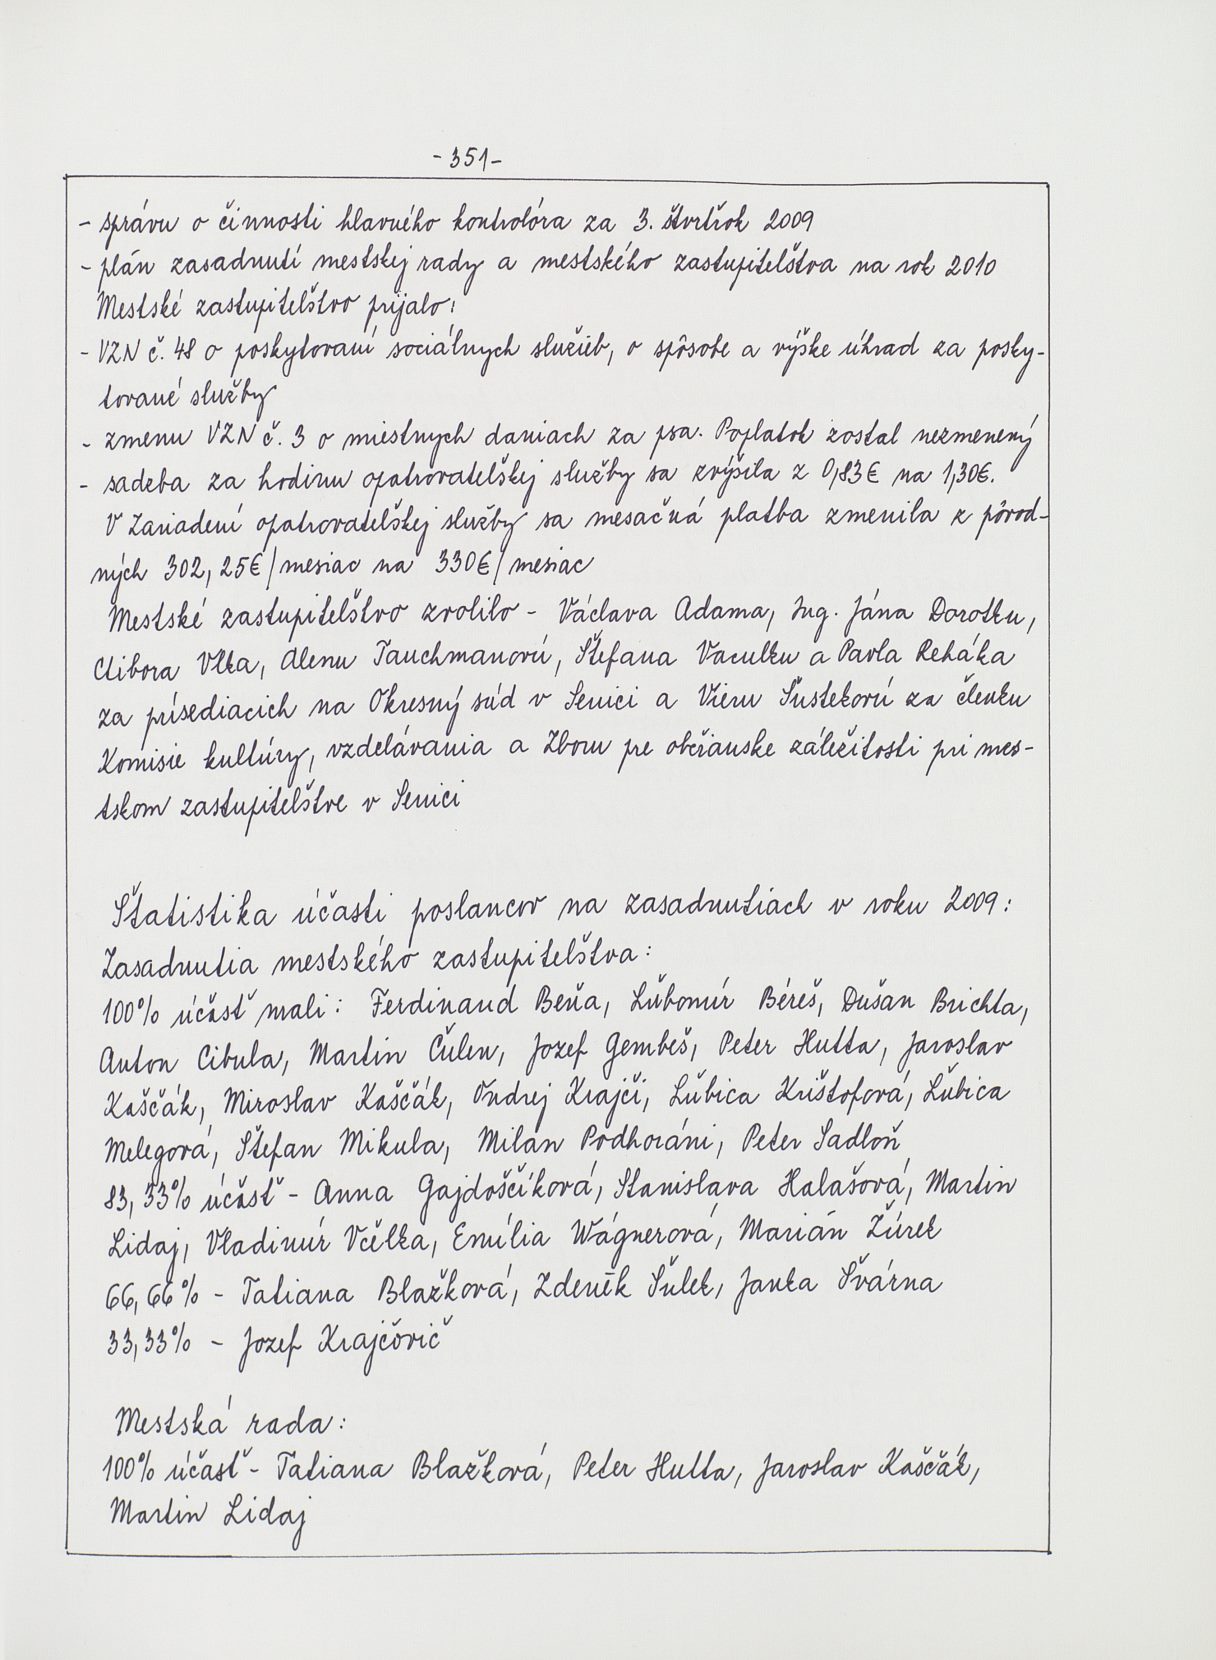 -351-
- správu o činnosti hlavného kontrolóra za 3. štvrťrok 2009
- plán zasadnutí mestskej rady a mestského zastupiteľstva na rok 2010
Mestské zastupiteľstvo prijalo:
- VZN č. 48 o poskytovaní sociálnych služieb, o spôsobe a výške úhrad za posky-
tované služby
- zmenu VZN č. 3 o miestnych daniach za psa. Poplatok zostal nezmenený
- sadzba za hodinu opatrovateľskej služby sa zvýšila z 0,83€ na 1,30€.
V Zariadení opatrovateľskej služby sa mesačná platba zmenila z pôvod-
ných 302,25€/mesiac na 330€/mesiac
Mestské zastupiteľstvo zvolilo - Václava Adama, Ing. Jána Dorotku,
Ctibora Vlka, Alenu Tauchmanovú, Štefana Vaculku a Pavla Reháka
za prísediacich na Okresný súd v Senici a Vieru Šustekovú za členku
Komisie kultúry, vzdelávania a Zboru pre občianske záležitosti pri mes-
tskom zastupiteľstve v Senici
Štatistika účasti poslancov na zasadnutiach v roku 2009:
Zasadnutia mestského zastupiteľstva:
100% účasť mali: Ferdinand Beňa, Ľubomír Béreš, Dušan Brichta,
Anton Cibula, Martin Čulen, Jozef Gembeš, Peter Hutta, Jaroslav
Kaščák, Miroslav Kaščák, Ondrej Krajči, Ľubica Krištofová, Ľubica
Melegová, Štefan Mikula, Milan Podhoráni, Peter Sadloň
83,33% účasť - Anna Gajdoščíková, Stanislava Halašová, Martin
Lidaj, Vladimír Včelka, Emília Wágnerová, Marián Žúrek
66,66% - Tatiana Blažková, Zdeněk Šulek, Janka Švárna
33,33% - Jozef Krajčovič
Mestská rada:
100% účasť - Tatiana Blažková, Peter Hutta, Jaroslav Kaščák,
Martin Lidaj